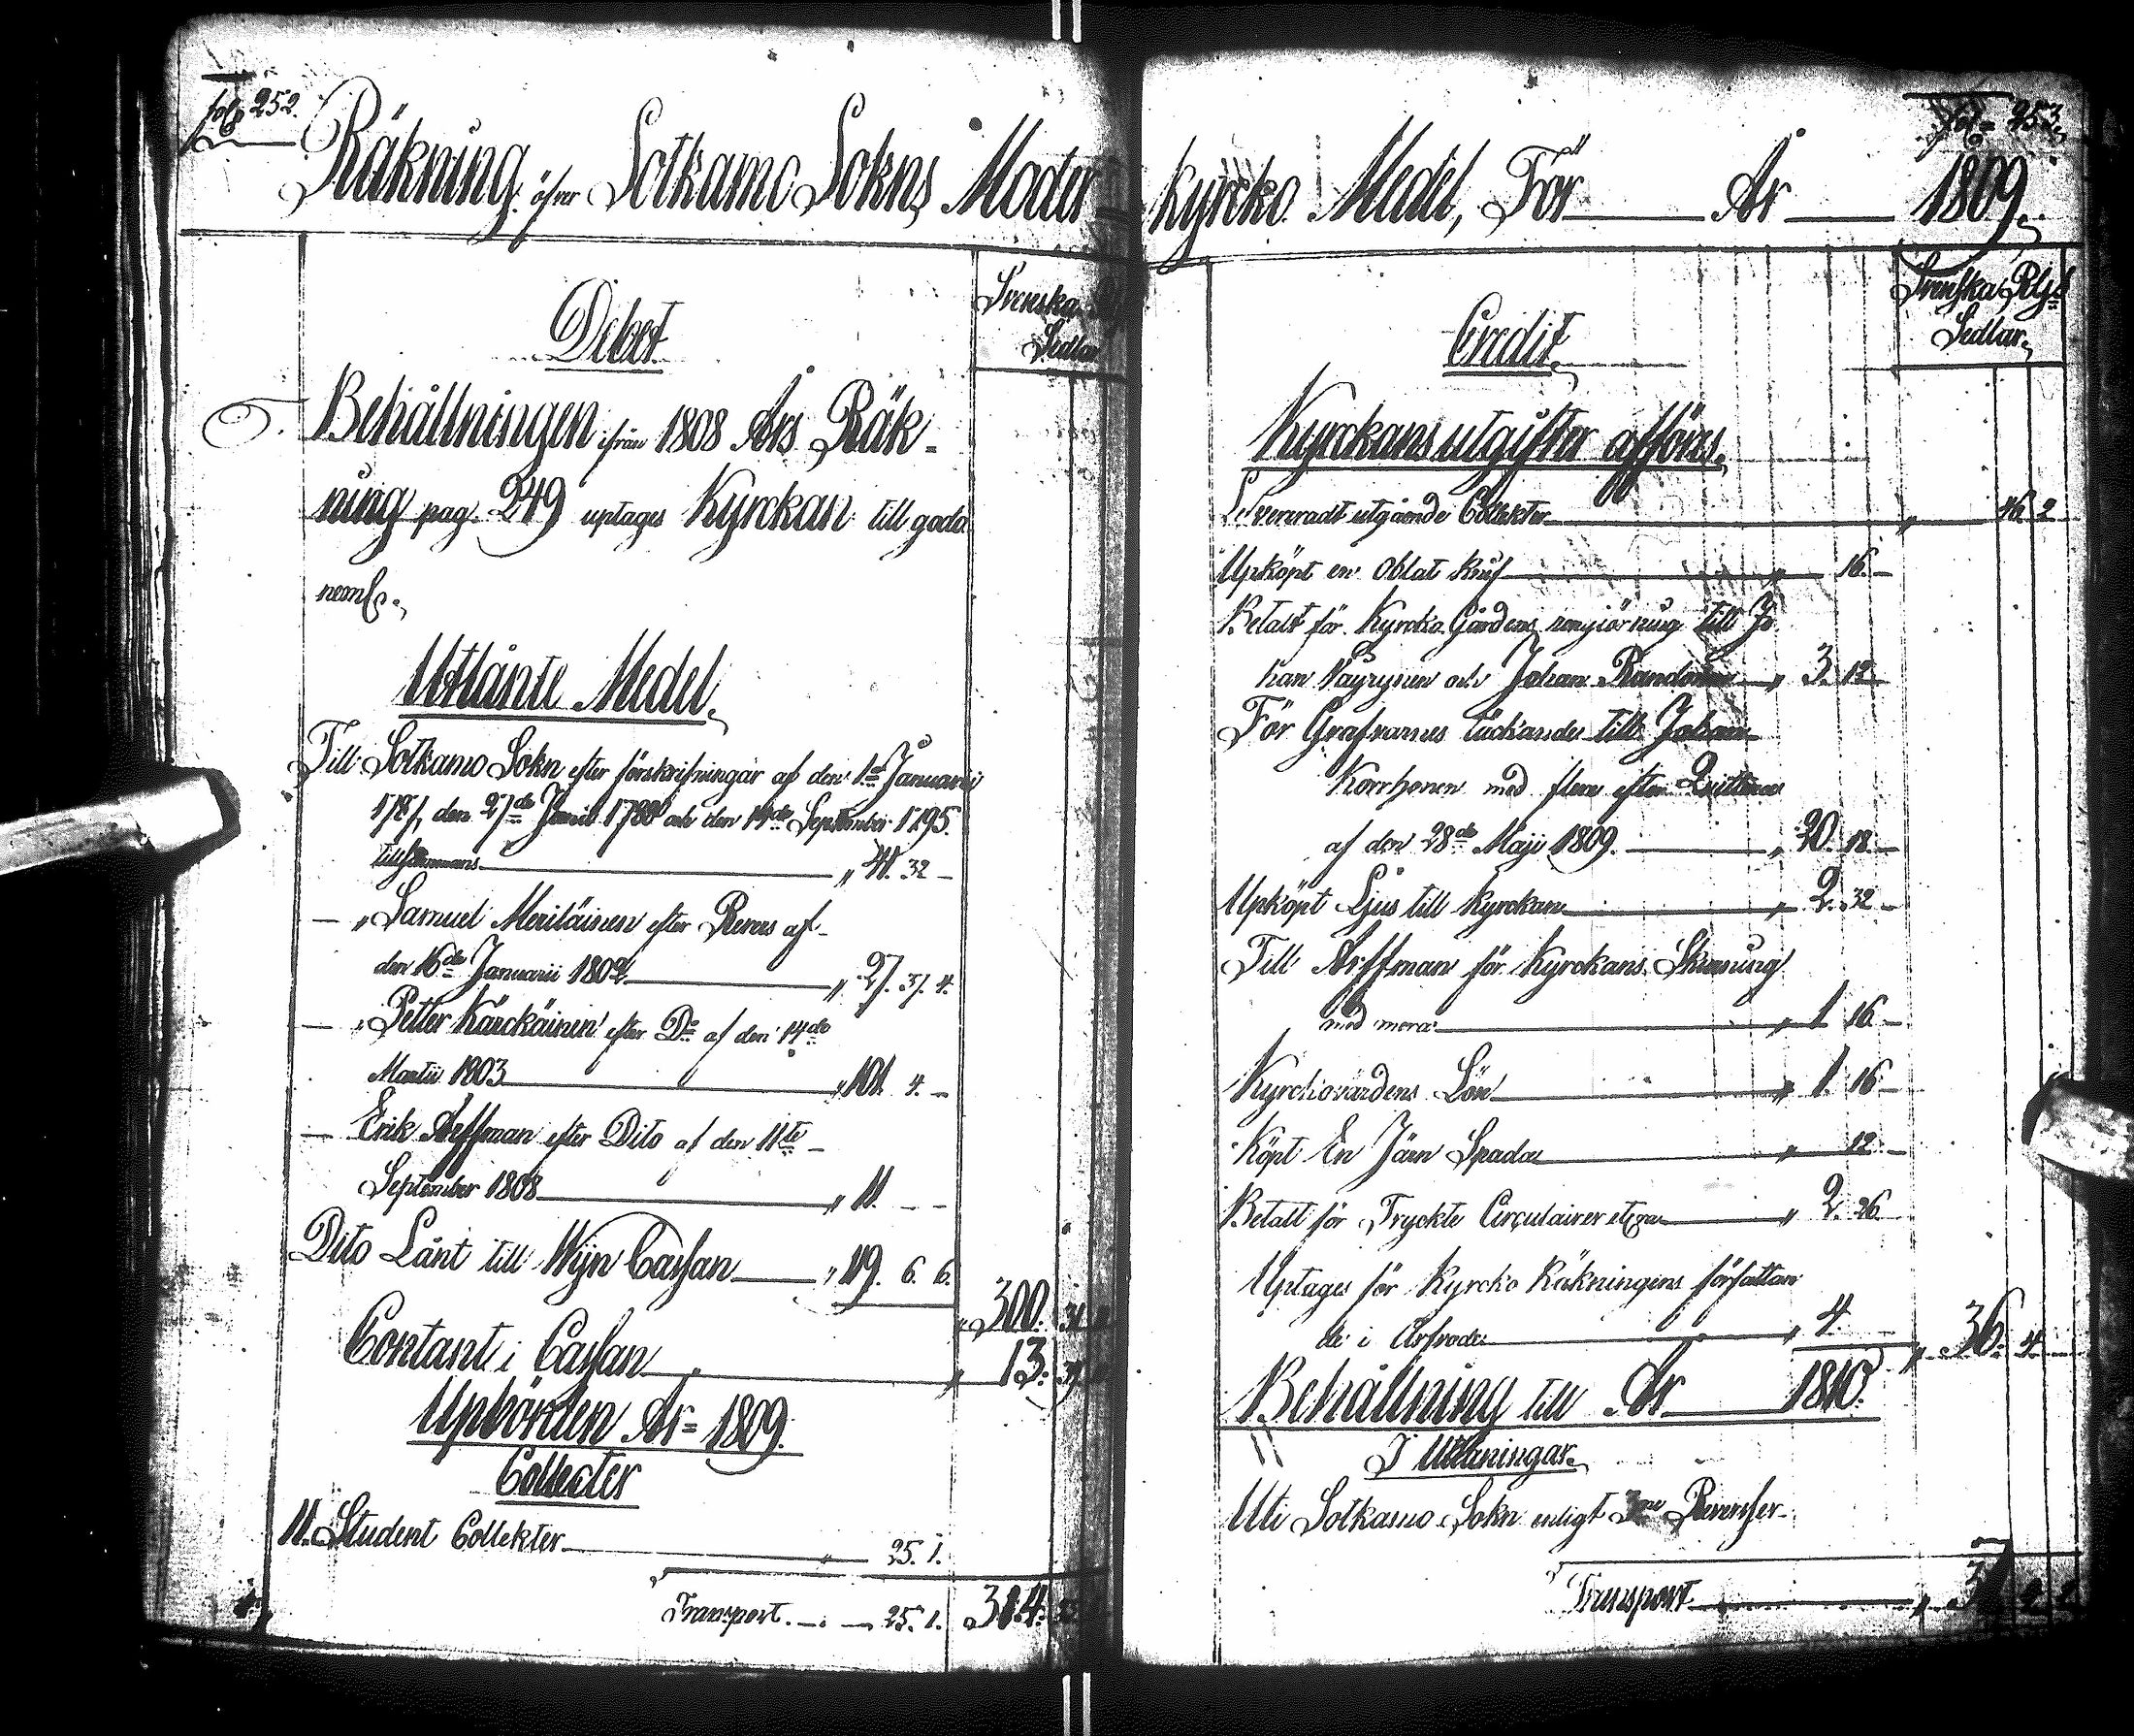 fol. 252.
Räkning öfver Sotkamo Sokns Moder
Debet
Svenska
Sedlar
Behållningen ifrån 1808 Års Räk-
ning pag. 249 uptages Kyrckan till godo
neml.
Utlånte Medel.
Till Sotkamo Sokn efter förskrifningar af den 1sta Januarii
1787, den 27de Junii 1788 och den 14de September 1795.
tillsammans " 41. 32 -
- " Samuel Meriläinen efter Revers af
den 16de Januarii 1802 " 27. 37. 4.
- " Petter Kärckäinen efter Do af den 14de
Martii 1803 " 101. 4. -
- Erik Arffman efter Dito af den 11te
September 1808 " 11. - -
Dito Lånt till Wijn Cassan " 119. 6. 6.
" 300.
Contant i Cassan " 13.
Upbörden År 1809.
Collecter
11. Student Collekter " 25. 1.
Transport. 25. 1. 314.
fol. 253.
Kyrcko Medel, För År 1809.
Credit.
Svenska Rgs
Sedlar.
Kyrckans utgifter afföres.
Levereradt utgående Collekter " 46 2
Upköpt en Oblat knif " 16. -
Betalt för Kyrcko Gårdens rengiörning till Jo
han Väyrynen och Johan " 3. 12
För Grafvarnes täckande till Johan
Korrhonen med flera efter Quittence
af den 28de Maji 1809. " 20. 18. -
Upköpt Ljus till Kyrckan " 2. 32 -
Till Arffman för Kyrckans
med mera " 1 16 -
Kyrckovärdens Lön " 1. 16 -
Köpt En Järn Spada " 12. -
Betalt för Tryckte Circulairer etc. " 2. 26
Uptages för Kyrcko Räkningens författan
de i Arfvode " 4. " 36. 4.
Behållning till År 1810.
I Utlåningar.
Uti Sotkamo Sokn enligt 3ne Reverser
Transport